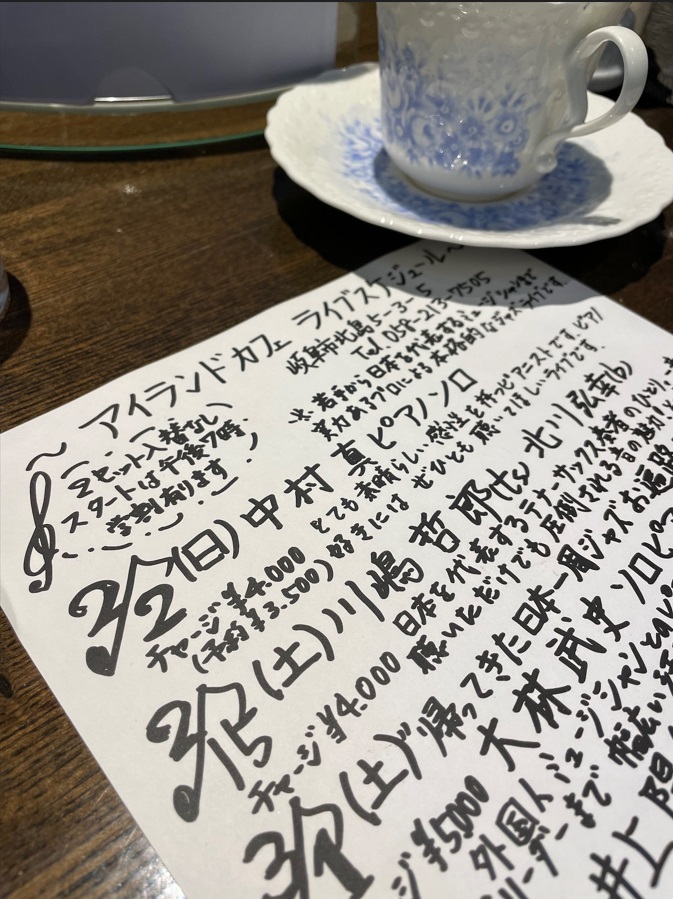 ~ アイランドカフェ ライブスケジュール ~
岐阜市北島5-3-5
Tel. 058-213-7505
※ 若手から日本を代表するミュージシャンまで
実力あるプロによる本格的なジャズライブです。
2セット入替なし
スタートは午後7時.
学割有ります
3/2(日) 中村 真 ピアノソロ
チャージ ¥4.000
(予約 ¥3.500)
とても素晴らしい感性を持つピアニストです。ピアノ
好きには ぜひとも 聴いてほしいライブです.
3/15(土) 川嶋 哲郎(ts) 北川弘幸(b)
チャージ ¥4.000
日本を代表するテナーサックス奏者のひとり.
聴いただけでも圧倒される音の魅力
帰ってきた日本一周ジャズお遍路
(土) 大林 武史 ソロピア
ジ ¥5000
外国人ミュージシャンとの
リーダーまで 幅広い
井上